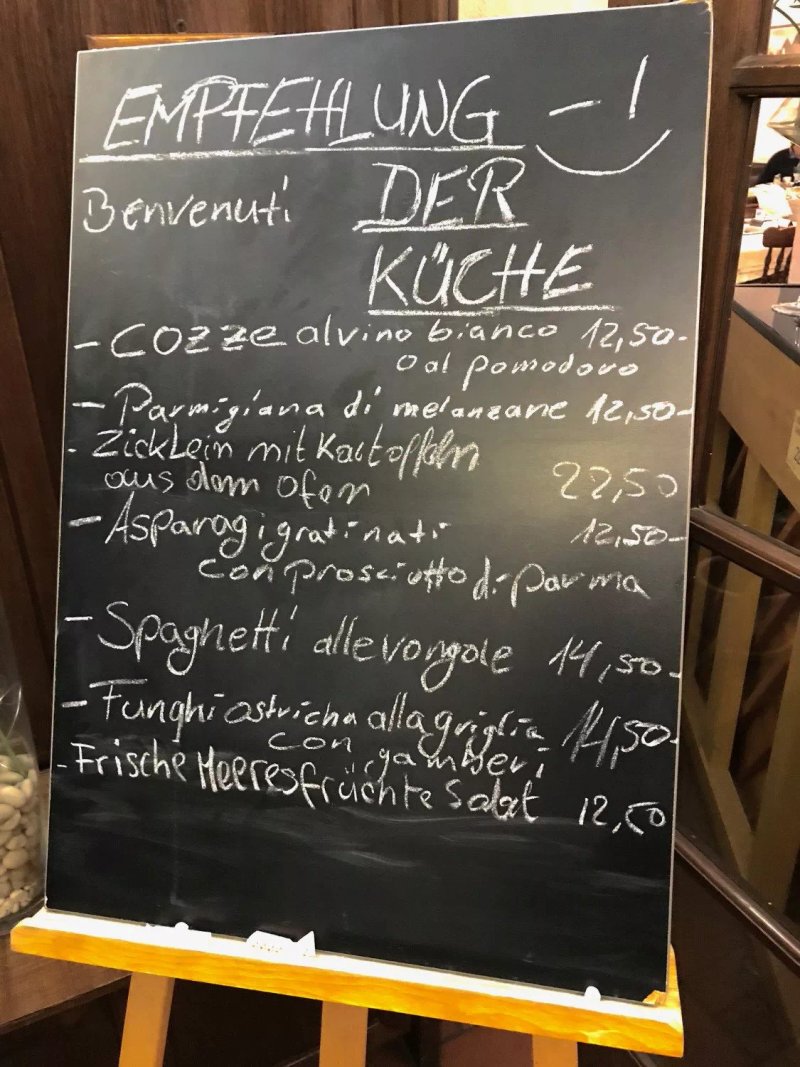 EMPFEHLUNG - !
Benvenuti DER
KÜCHE
- Cozze al vino bianco 12,50-
o al pomodoro
- Parmigiana di melanzane 12,50-
- Zicklein mit Kartoffeln
aus dem Ofen 22,50
- Asparagi gratinati 12,50-
con prosciutto di parma
- Spaghetti alle vongole 14,50-
- Funghi ostricha alla griglia 14,50-
con gamberi
- Frische Meeresfrüchte Salat 12,50